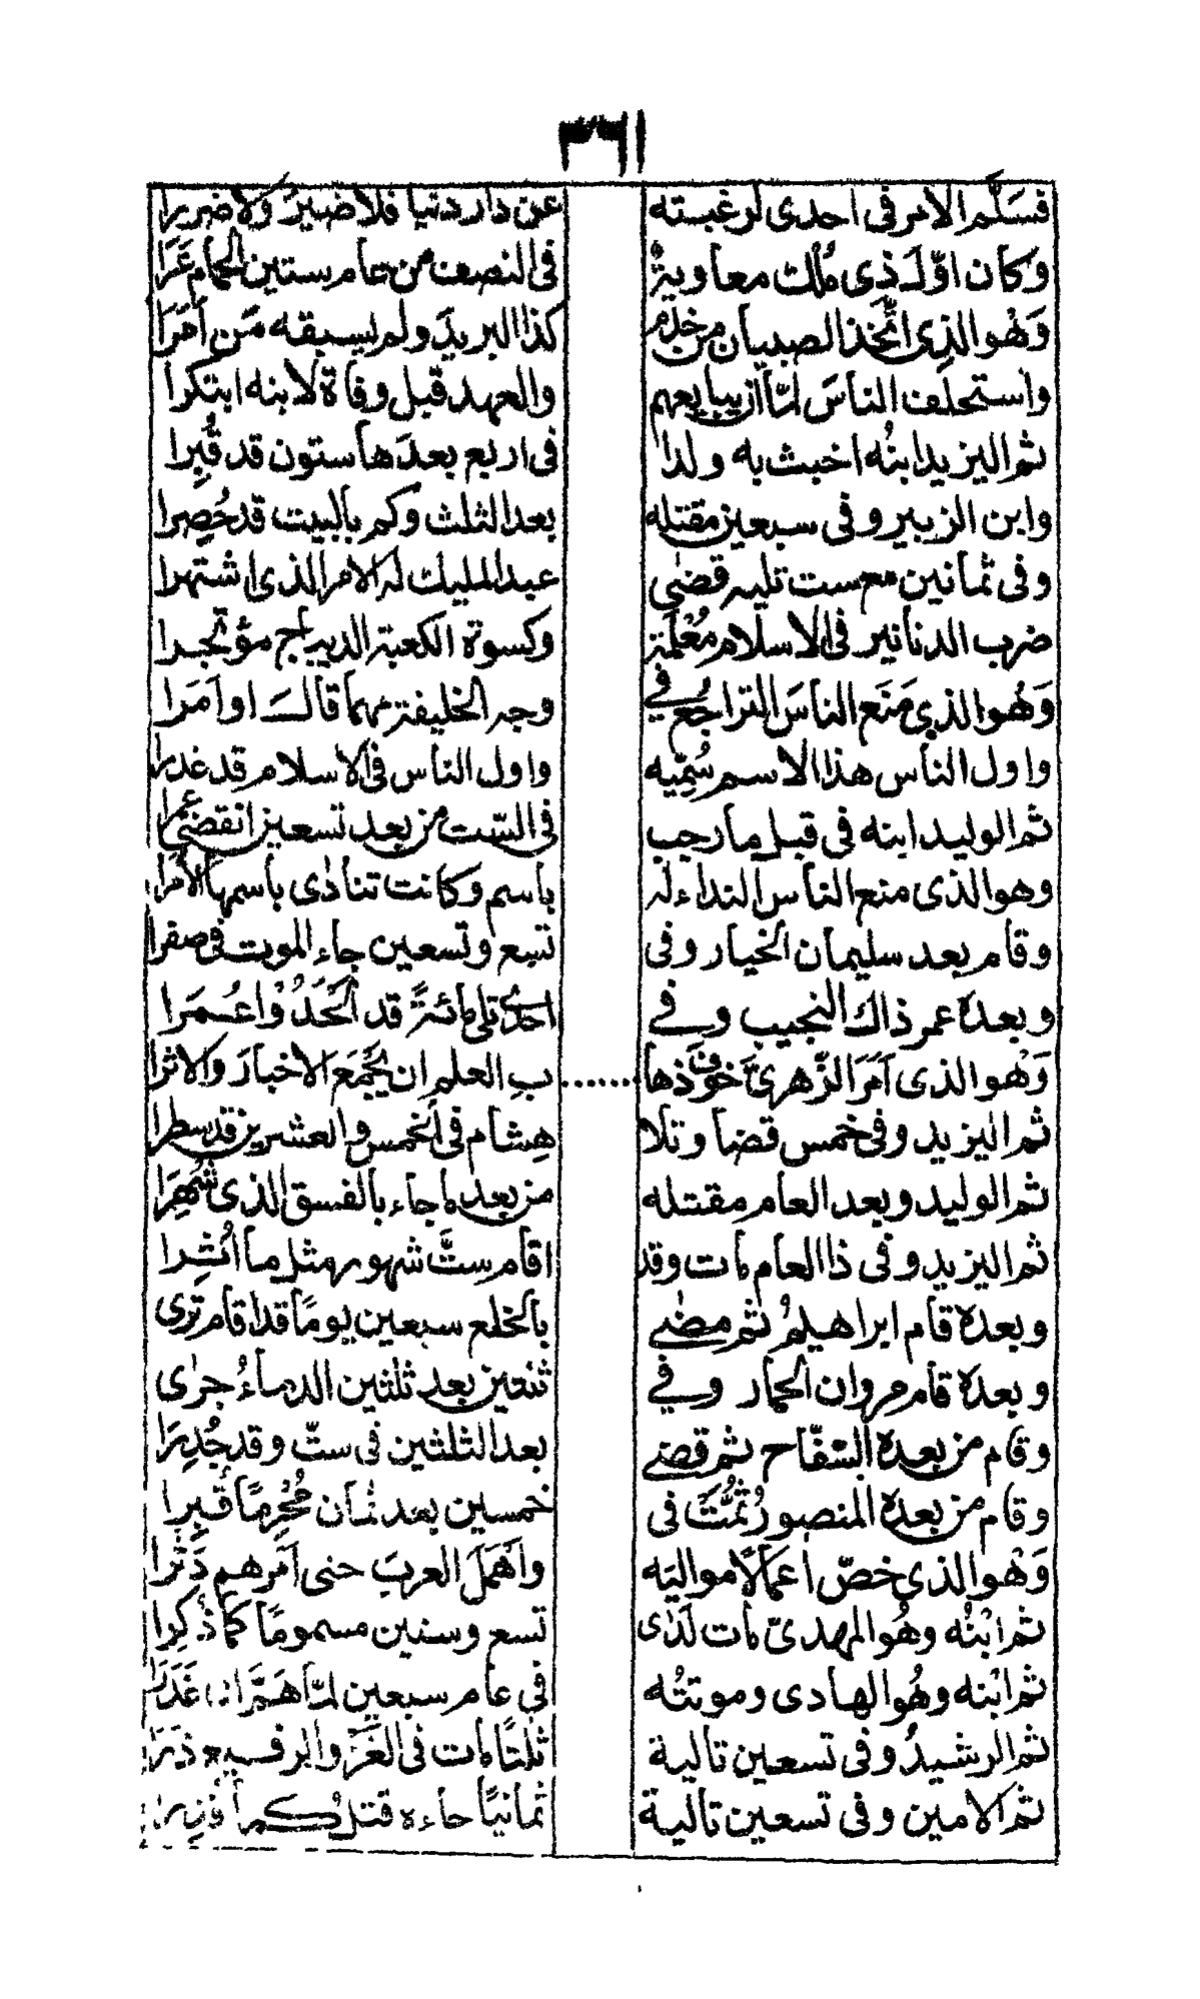 ٣٦١
فسَلَّم الامر فى احدى لرغبته عن دار دنيا فلا ضيرٌ ولا ضررا
وكان اوّل ذى مُلك معاوية فى النصف من عام ستين الحمام عَرَا
وَهُو الذِى اتّخذ الصبيان من خدم كذا البريدَ ولم يسبقه مَن أَمَرا
واستحلف الناسَ لمّا ان يبايعهم والعهد قبل وفاة لابنه ابتكرا
ثم اليزيد ابنُه اخبث به ولدا فى اربع بعدَها ستون قد قُبِرا
وابن الزبير وفى سبعين مقتله بعد الثلث وكم بالبيت قد حُصِرا
وفى ثمانين مع ست تليه قضى عبد المليك له الامر الذى اشتهرا
ضرب الدنانير فى الاسلام مُعْلَمة وكسوة الكعبة الديباج مؤتجرا
وَهُو الذى مَنَع الناسَ التراجع فى وجه الخليفة مهما قال او امَرا
واول الناس هذا الاسم سُمِّيه واول الناس فى الاسلام قد غدرا
ثم الوليد ابنه فى قبل ما رجب فى السّت من بعد تسعين انقضى عمرا
وهو الذى منع الناس النداء له باسم وكانت تنادٰى باسمها الامرا
وقام بعد سليمان الخيار وفى تسع وتسعين جاء الموت فى صفرا
وبعدهٗ عمر ذاك النجيب وفى احدى تلى مائةً قد اَلْحَدُوْا عُمَرا
وَهْو الذى اَمَرَ الزُّهرىّ خوفَ ذها ...... بِ العلم ان يَجْمَع الاخبارَ والاثرا
ثم اليزيد وفى خمس قضا وتلا هِشام فى الخمس والعشرين قد سطرا
ثم الوليد وبعد العام مقتله من بعد ما جاء بالفسق الذى شُهِرَا
ثم اليزيد وفى ذا العام مات وقد اقام ستَّ شهور مثل ما اُثِرا
وبعدهٗ قام ابراهيمُ ثم مضى بالخلع سبعين يومًا قد اقام ترى
وبعدهٗ قام مروان الحمار وفى ثنتين بعد ثلثين الدماءُ جرٰى
وقام من بعده السّفّاح ثم قضى بعد الثلثين فى ستّ وقد جُدِرَا
وقام من بعده المنصور ثُمَّتَ فى خمسين بعد ثمان مُحْرِمًا قُبِرا
وَهْو الذى خصّ اعمالًا مواليَه وَاَهْمَلَ العربَ حتى اَمرهم دَثَرا
ثم ابْنُه وهُو المهدىّ مات لَدٰى تسع وستين مسمومًا كما ذُكِرا
ثم ابْنه وهُو الهادى وموتتُه فى عام سبعين لمّا هَمَّ ان غَدَرا
ثم الرشيدُ وفى تسعين تالية ثلثًا مات فى الغَزْو الرفيع ذرَا
ثم الامين وفى تسعين تالية ثمانيًا جاءه قتل كما قُدِرا